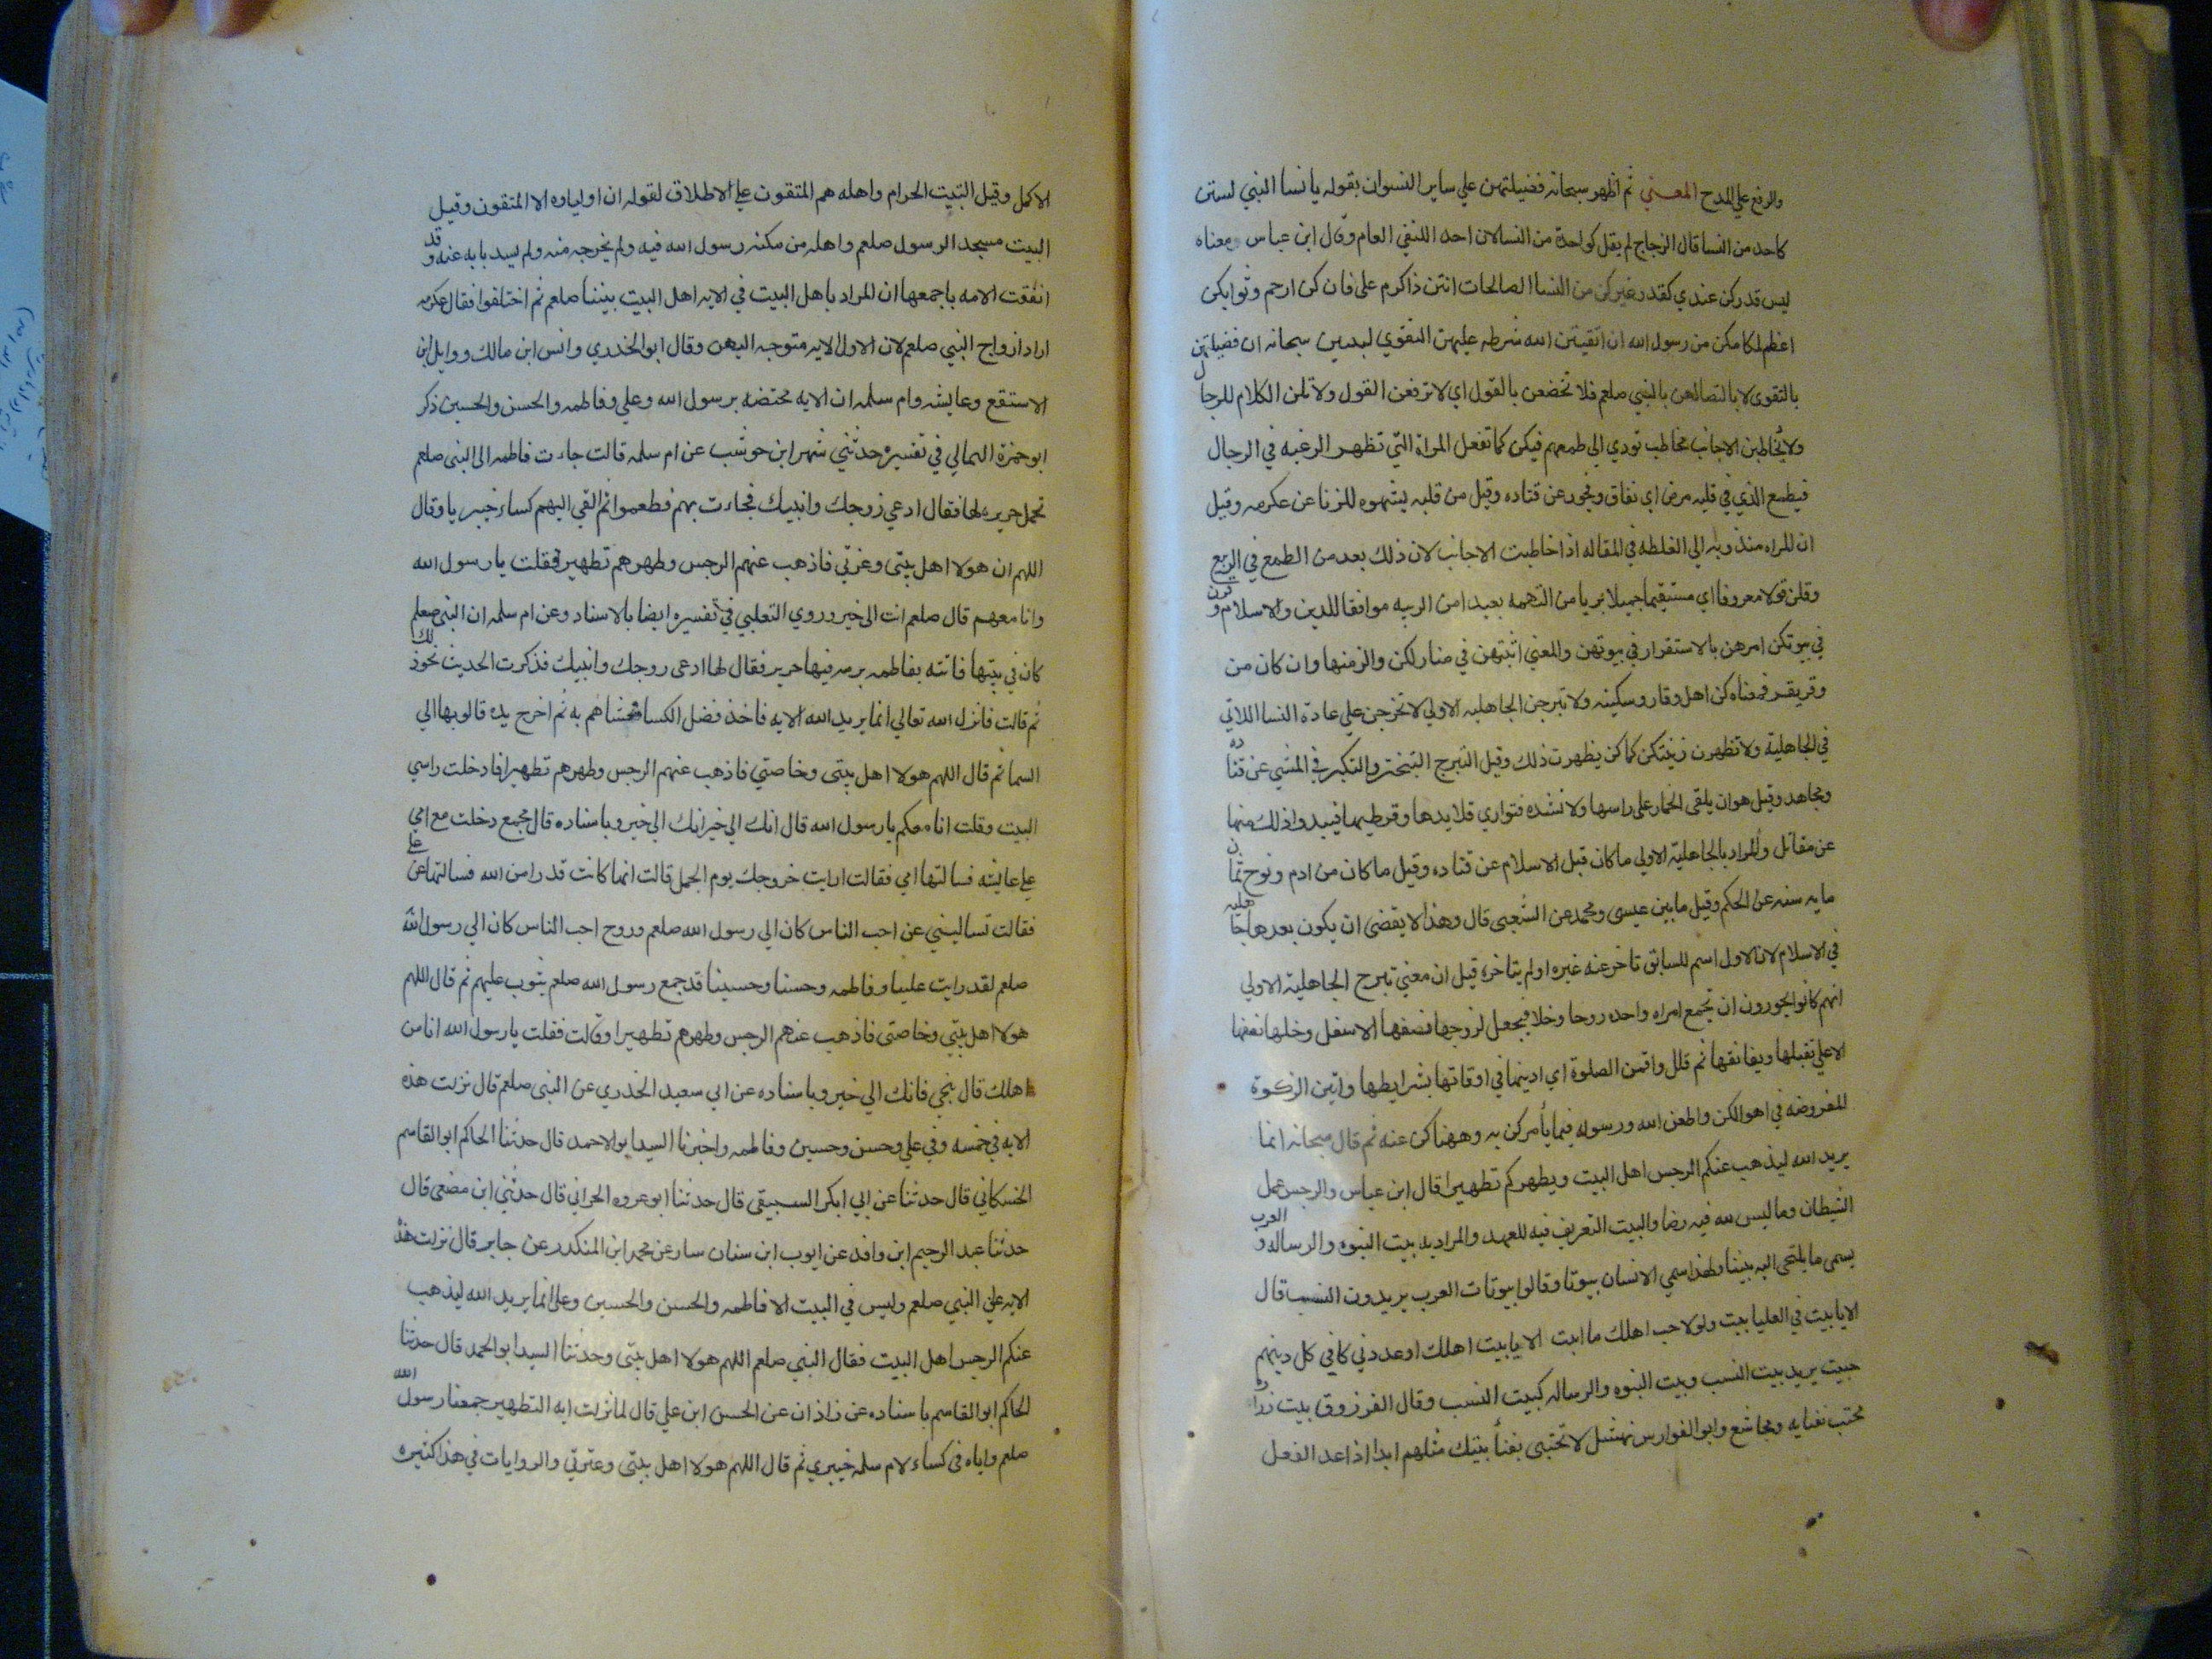 والرفع علي المدح المعني ثم اظهر سبحانه فضيلتهن علي ساير النسوان بقوله يا نسا النبي لستن
كاحد من النسا قال الزجاج لم يقل كواحدة من النسا لان احد للنفي العام وقال ابن عباس معناه
ليس قدركن عندي كقدر غيركن من النسا الصالحات انتن ذاكرم علي فان كن ارحم وثوابكن
اعظم لمكامكن من رسول الله ان اتقيتن الله شرطه عليهن التقوي ليبين سبحانه ان فضيلتهن
بالتقوي لا باتصالهن بالنبي صلعم فلا تخضعن بالقول اي لا ترفعن القول ولا تلن الكلام للرجال
ولا يخاطبن الاجانب مخاطب تودي الي طمعهم فيكن كما تفعل المراة التي تظهر الرغبه في الرجال
فيطمع الذي في قلبه مرض اي نفاق وفجور عن قتاده وقيل من قلبه يشهوه للزنا عن عكرمه وقيل
ان للمراه مندوبه الي الغلظه في المقاله اذا خاطبت الاجانب لان ذلك بعد من الطمع في الريع
وقلن قولا معروفا اي مستقيما جميلا بريا من التهمه بعيدا من الريبه موافقا للدين والاسلام وقرن
في بيوتكن امرهن بالاستقرار في بيوتهن والمعني اثبتهن في منازلكن والزمنها وان كان من
وقر يقر فمعناه كن اهل وقار وسكينه ولا تبرجن الجاهليه الاولي لا تخرجن علي عادة النسا اللاتي
في الجاهلية ولا تظهرن زينتكن كما كن يظهرت ذلك وقيل التبرج التبختر والتكبر في المشي عن قتاده
ومجاهد وقيل هوان يلقي الخمار علي راسها ولا تشده فتواري قلايدها وقرطيها فيبدوا ذلك منها
عن مقاتل والمراد بالجاهلية الاولي ما كان قبل الاسلام عن قتاده وقيل ما كان من ادم ونوح ثمان
مايه سنه عن الحكم وقيل ما بين عيسي ومحمد عن الشعبي قال وهذا لا يقضي ان يكون بعدها جاهليه
في الاسلام لان الاول اسم للسابق تاخر عنه غيره او لم يتاخره قيل ان معني تبرج الجاهلية الاولي
انهم كانوا يجورون ان تجمع امراه واحده روحا وخلا فيجعل لزوجها نصفها الاسفل وخلها نصفها
الاعلي تقبلها ويعانقها ثم قلل واقمن الصلوة اي ادينها في اوقاتها بشرايطها واتين الزكوة
المفروضه في اموالكن واطعن الله ورسوله فيما يأمركن به وههناكن عنه ثم قال سبحانه انما
يريد الله ليذهب عنكم الرجس اهل البيت ويطهركم تطهيرا قال ابن عباس والرجس عمل
الشيطان وما ليس لله فيه رضا والبيت التعريف فيه للعهد والمراد به بيت النبوه والرساله والعرب
يسمي ما يلتجي اليه بيتا ولهذا سمي الانسان بيوتا وقالوا بيوتات العرب يريدون النسب قال
الا يا بيت في العليا بيت ولولا حب اهلك ما اتيت الا يا بيت اهلك اوعدوني كاني كل ذنبهم
جبيت يريد بيت النسب وبيت النبوه والرساله كبيت النسب وقال الفرزوق بيت زراره
محتب بفنايه ومجاشع وابو الفوارس نهشل لا تحتبي بفنأ بيتك مثلهم ابدا اذا عد الفعل
الاكمل وقيل البيت الحرام واهله هم المتقون علي الاطلاق لقوله ان اولياوه الا المتقون وقيل
البيت مسجد الرسول صلعم واهله من مكنه رسول الله فيه ولم يخرجه منه ولم يسد بابه عنه وقد
اتفقت الامه باجمعها ان المراد باهل البيت في الايه اهل البيت بيننا صلعم ثم اختلفوا فقال عكرمه
اراد ازواج النبي صلعم لان الاول الايه متوجه اليهن وقال ابو الخدري وانس ابن مالك ووايل ابن
الاستقع وعايشه وام سلمه ان الايه مختضه برسول الله وعلي وفاطمه والحسن والحسين ذكر
ابو حمزة الثمالي في تفسيره حدثني شهر ابن حوشب عن ام سلمه قالت جاءت فاطمه الي النبي صلعم
تحمل حريره لها فقال ادعي زوجك وابنيك فجاءت بهم فطعموا ثم القي اليهم كساء خيبريا وقال
اللهم ان هولا اهل بيتي وعترتي فاذهب عنهم الرجس وطهرهم تطهيرا فقلت يا رسول الله
وانا معهم قال صلعم انت الي خير وروي الثعلبي في تفسيره ايضا بالاسناد وعن ام سلمه ان النبي صلعم
كان في بيتها فاتته بفاطمه برمه فيها حرير فقال لها ادعي زوجك وابنيك فذكرت الحديث نحو ذلك
ثم قالت فانزل الله تعالي انما يريد الله الايه فاخذ فضل الكسا فغشاهم به ثم اخرج يده قالو بها الي
السما ثم قال اللهم هولا اهل بيتي وخاصتي فاذهب عنهم الرجس وطهرهم تطهيرا فادخلت راسي
البيت وقلت انا معكم يا رسول الله قال انك الي خير انك الي خير وباسناده قال مجمع دخلت مع امي
علي عايشه فسالتها امي فقالت ارايت خروجك يوم الجمل قالت انها كانت قدرا من الله فسالتها عن علي
فقالت تساليني عن احب الناس كان الي رسول الله صلعم وروح احب الناس كان الي رسول الله
صلعم لقد رايت عليا وفاطمه وحسنا وحسينا قد جمع رسول الله صلعم بثوب عليهم ثم قال اللهم
هولا اهل بيتي وخاصتي فاذهب عنهم الرجس وطهرهم تطهيرا وقالت فقلت يا رسول الله انا من
اهلك قال بنجي فانك الي خير وباسناده عن ابي سعيد الخذري عن النبي صلعم قال نزلت هذه
الايه في خمسه وفي علي وحسن وحسين وفاطمه واخبرنا السيد ابو الاحمد قال حدثنا الحاكم ابو القاسم
الخسكاني قال حدثنا عن ابي ابكر السبيقي قال حدثنا ابو عروه الحراني قال حدثني ابن مصغي قال
حدثنا عبد الرحيم ابن وافد عن ايوب ابن سنان سار عن محمد ابن المنكدر عن جابر قال نزلت هذه
الايه علي النبي صلعم وليس في البيت الا فاطمه والحسن والحسين وعلي انما يريد الله ليذهب
عنكم الرجس اهل البيت فقال النبي صلعم اللهم هولا اهل بيتي وحدثنا السيد ابو الحمد قال حدثنا
الحاكم ابو القاسم باسناده عن زاذان عن الحسن ابن علي قال لما نزلت ايه التطهير جمعنا رسول الله
صلعم واياه في كساء لام سلمه خيبري ثم قال اللهم هولا اهل بيتي وعترتي والروايات في هذا كثيره